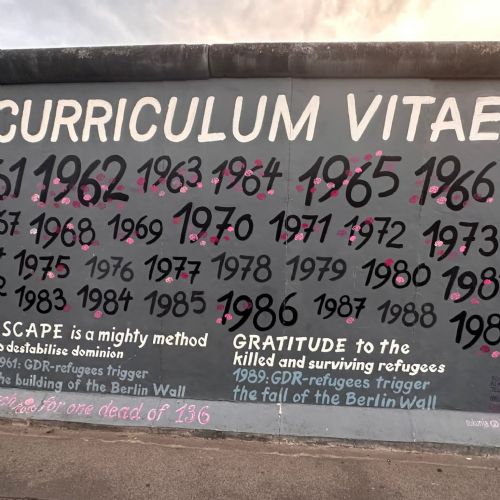 CURRICULUM VITAE
61 1962 1963 1964 1965 1966
67 1968 1969 1970 1971 1972 1973
1975 1976 1977 1978 1979 1980 198
1983 1984 1985 1986 1987 1988 198
SCAPE is a mighty method
o destabilise dominion
1961: GDR-refugees trigger
the building of the Berlin Wall
GRATITUDE to the
killed and surviving refugees
1989: GDR-refugees trigger
the fall of the Berlin Wall
ch for one dead of 136